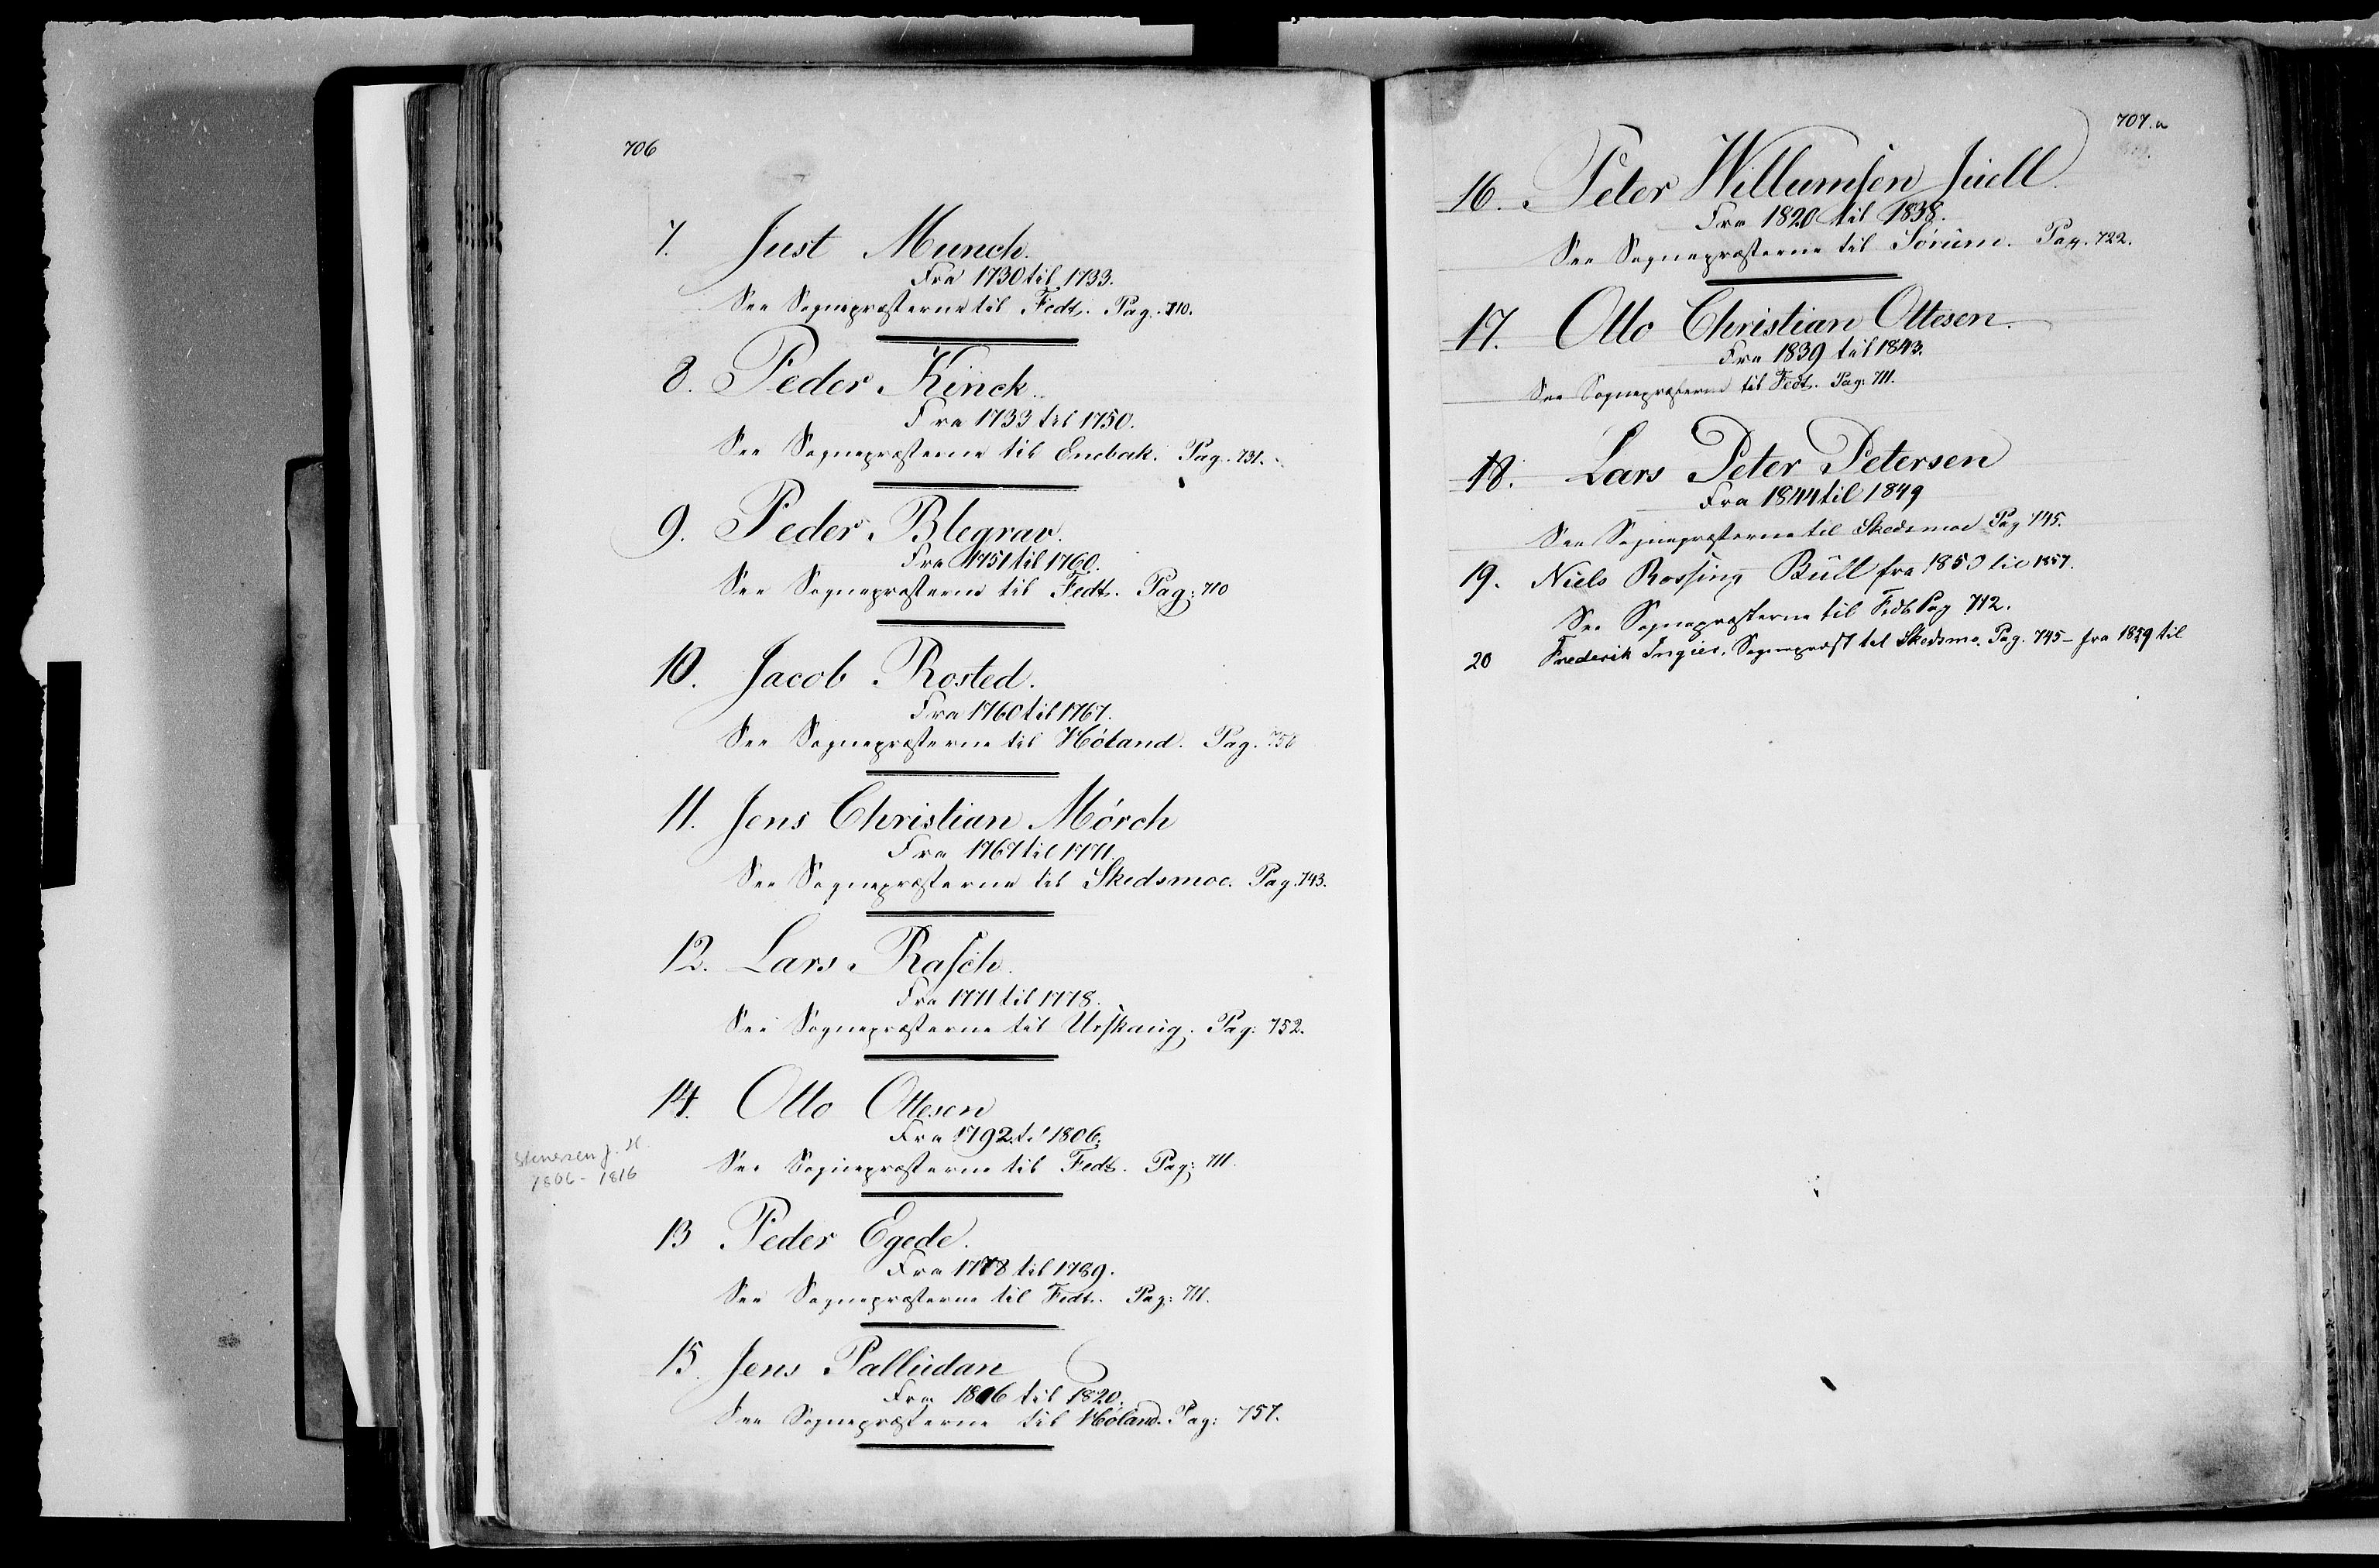 706
7. Just Munch.
Fra 1730 til 1733.
See Sognepræsterne til Fedt. Pag. 710.
8. Peder Kinck.
Fra 1733 til 1750.
See Sognepræsterne til Enebak. Pag. 731.
9. Peder Blegrav.
Fra 1751 til 1760.
See Sognepræsterne til Fedt. Pag: 710
10. Jacob Rosted.
Fra 1760 til 1767.
See Sognepræsterne til Høland. Pag.
11. Jens Christian Mørch
Fra 1767 til 1771.
See Sognepræsterne til Skedsmoe. Pag. 743.
12. Lars Rasch.
Fra 1771 til 1778.
See Sognepræsterne til Urskaug. Pag: 752.
14. Otto Ottesen
Fra 1792 til 1806.
See Sognepræsterne til Fedt. Pag: 711.
Stenersen J. H.
1806 - 1816
13 Peder Egede.
Fra 1778 til 1789.
See Sognepræsterne til Fedt. Pag: 711.
15. Jens Palludan
Fra 1816 til 1820.
See Sognepræsterne til Høland. Pag: 757.
707.a
16. Peter Willumsen Juell.
Fra 1820 til 1838.
See Sognepræsterne til Sørum. Pag. 722.
17. Otto Christian Ottesen.
Fra 1839 til 1843.
See Sognepræsterne til Fedt. Pag: 711.
18. Lars Peter Petersen
Fra 1844 til 1849
See Sognepræsterne til Skedsmoe Pag 745.
19. Niels Rossing Bull fra 1850 til 1857.
See Sognepræsterne til Fedt Pag 712.
20 Frederik Ingier, Sognepræst til Skedsmo. Pag. 745 - fra 1859 til